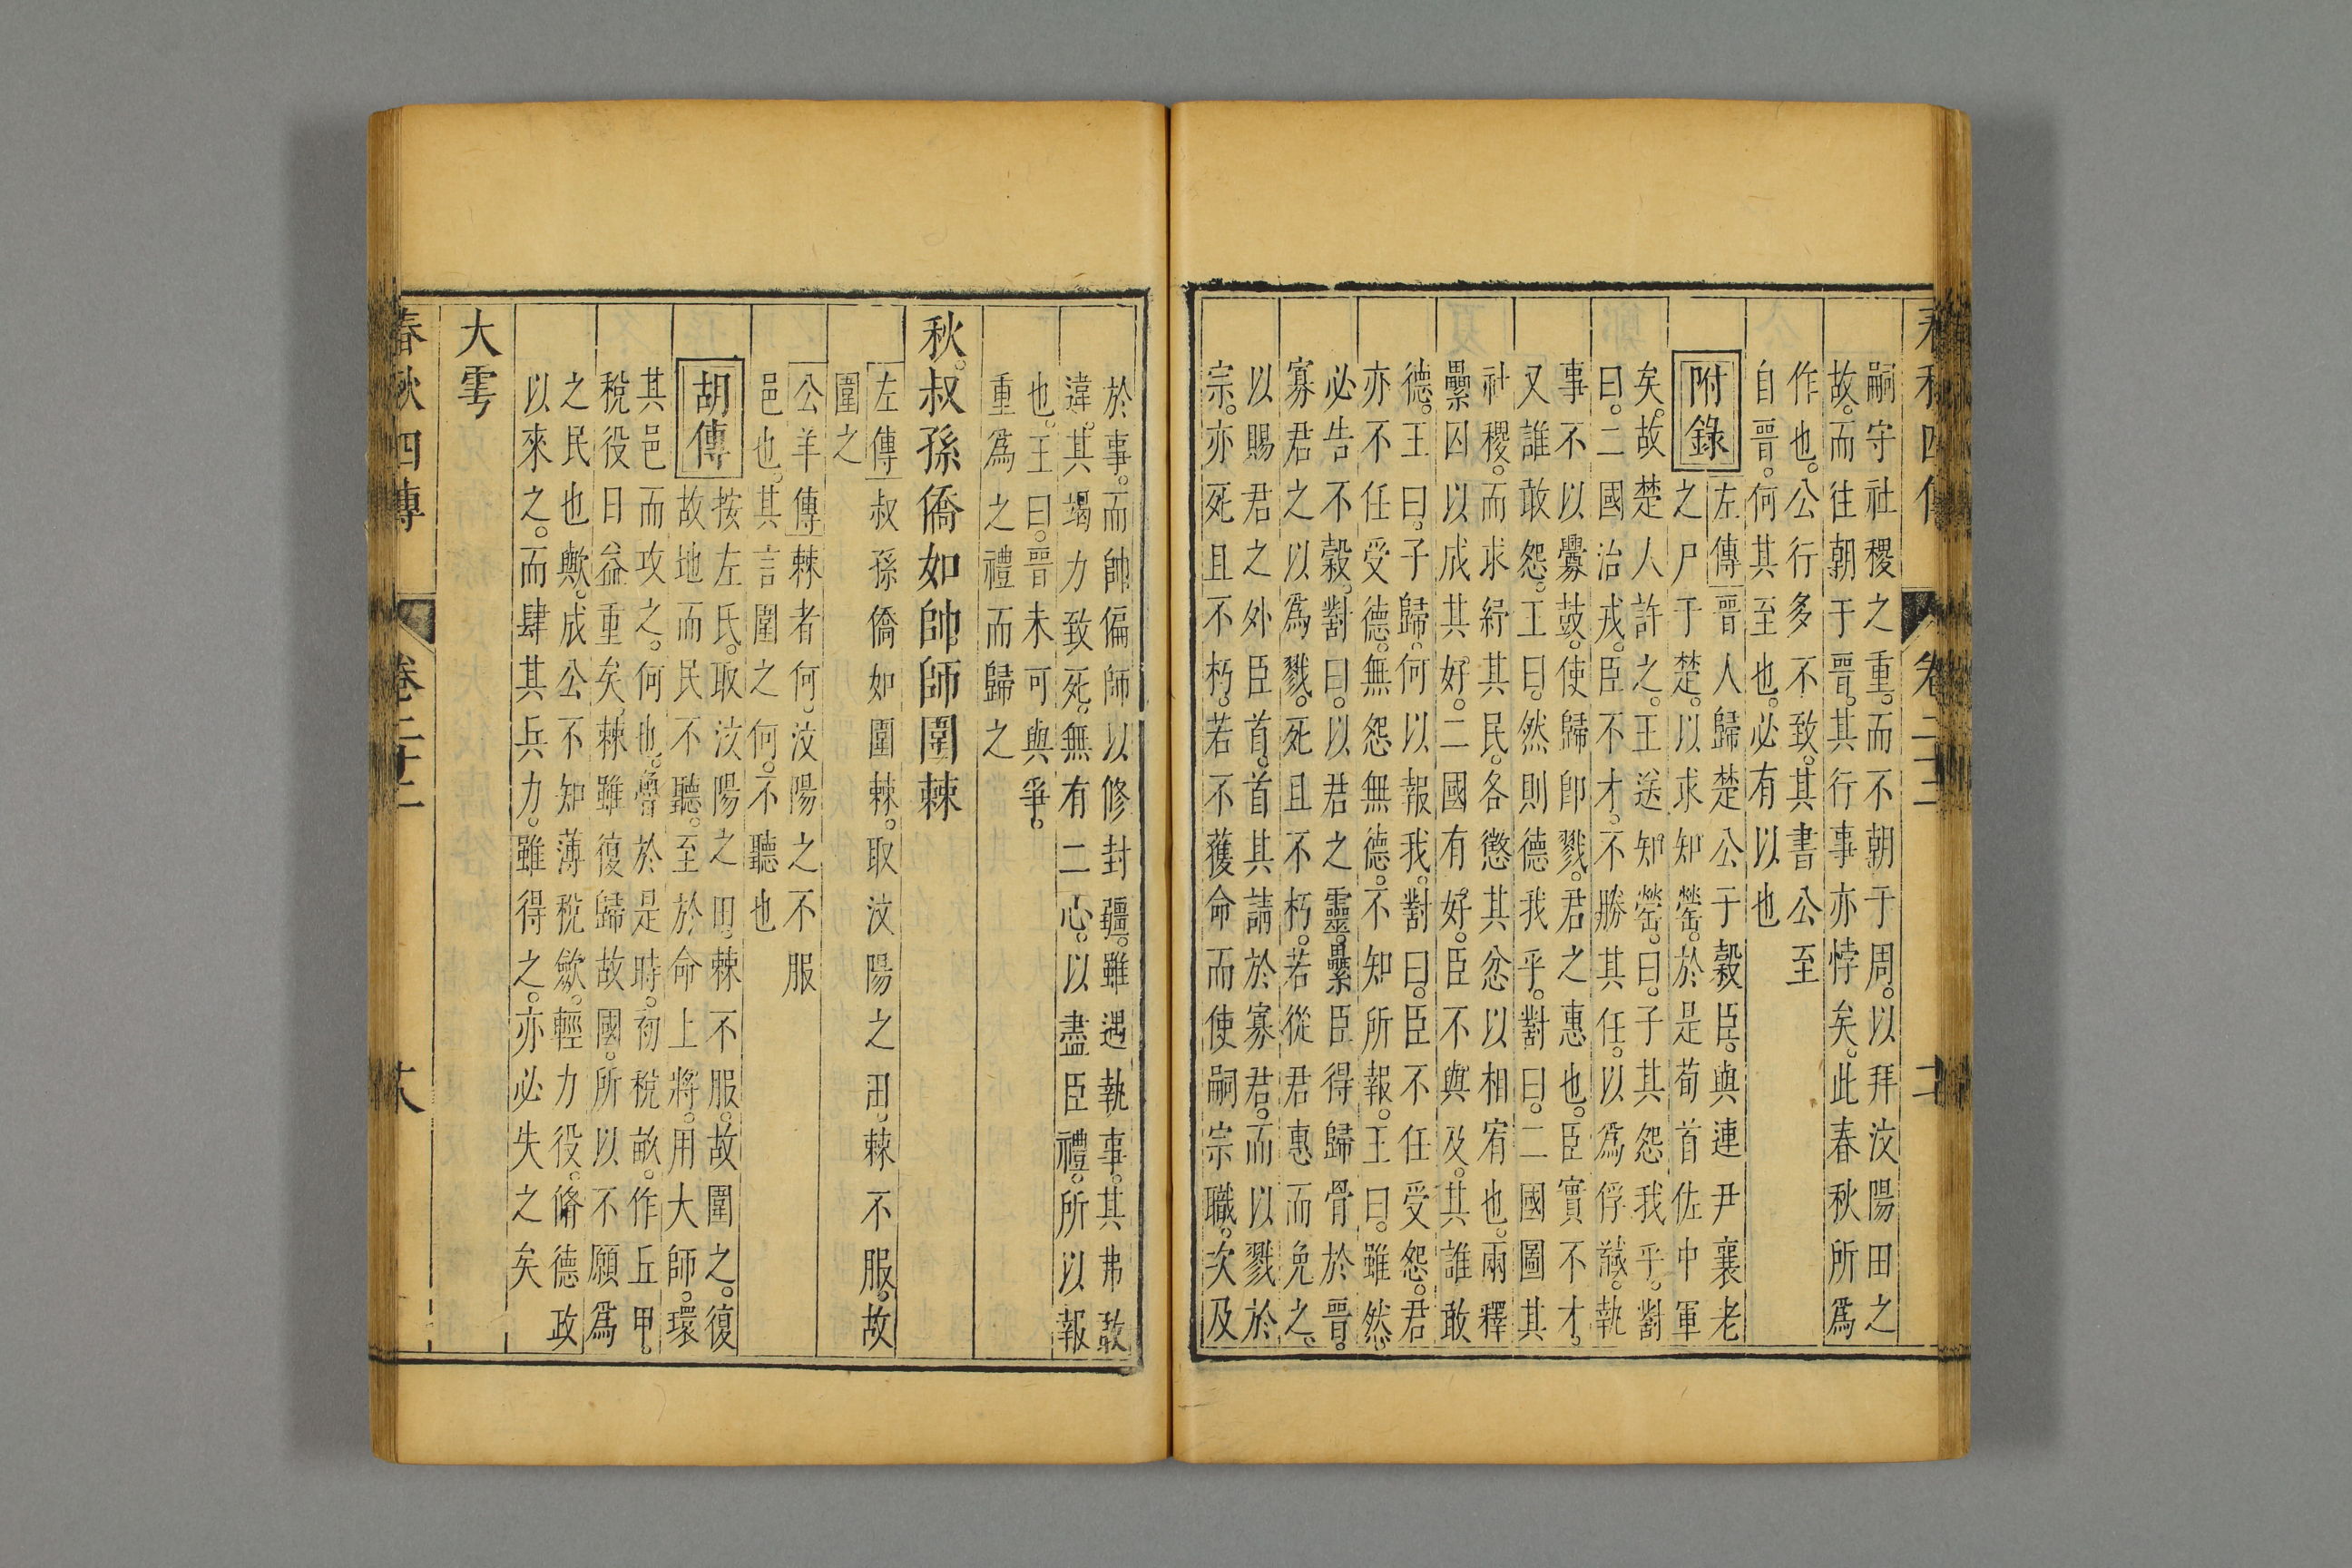 嗣守社稷之重。而不朝于周。以拜汶陽田之
故。而往朝于晉。其行事亦悖矣。此春秋所爲
作也。公行多不致。其書公至
自晉。何其至也。必有以也
附錄
左傳晉人歸楚公于穀臣。與連尹襄老
之尸于楚。以求知罃。於是荀首佐中軍
矣。故楚人許之。王送知罃。曰。子其怨我乎。對
曰。二國治戎。臣不才。不勝其任。以爲俘馘。執
事不以釁鼓。使歸卽戮。君之惠也。臣實不才。
又誰敢怨。王曰。然則德我乎。對曰。二國圖其
社稷。而求紓其民。各懲其忿以相宥也。兩釋
纍囚以成其好。二國有好。臣不與及。其誰敢
德。王曰。子歸。何以報我。對曰。臣不任受怨。君
亦不任受德。無怨無德。不知所報。王曰。雖然。
必告不穀。對曰。以君之靈。纍臣得歸骨於晉。
寡君之以爲戮。死且不朽。若從君惠而免之。
以賜君之外臣首。首其請於寡君。而以戮於
宗。亦死且不朽。若不獲命而使嗣宗職。次及
於事。而帥偏師以修封疆。雖遇執事。其弗敢
違。其竭力致死。無有二心。以盡臣禮。所以報
也。王曰。晉未可與爭。
重爲之禮而歸之
秋。叔孫僑如帥師圍棘
左傳叔孫僑如圍棘。取汶陽之田。棘不服。故
圍之
公羊傳棘者何。汶陽之不服
邑也。其言圍之何。不聽也
胡傳
按左氏。取汶陽之田。棘不服。故圍之。復
故地而民不聽。至於命上將。用大師。環
其邑而攻之。何也。魯於是時。初稅畝。作丘甲。
稅役日益重矣。棘雖復歸故國。所以不願爲
之民也歟。成公不知薄稅斂。輕力役。脩德政
以來之。而肆其兵力。雖得之。亦必失之矣
大雩
春秋四傳
卷二十二